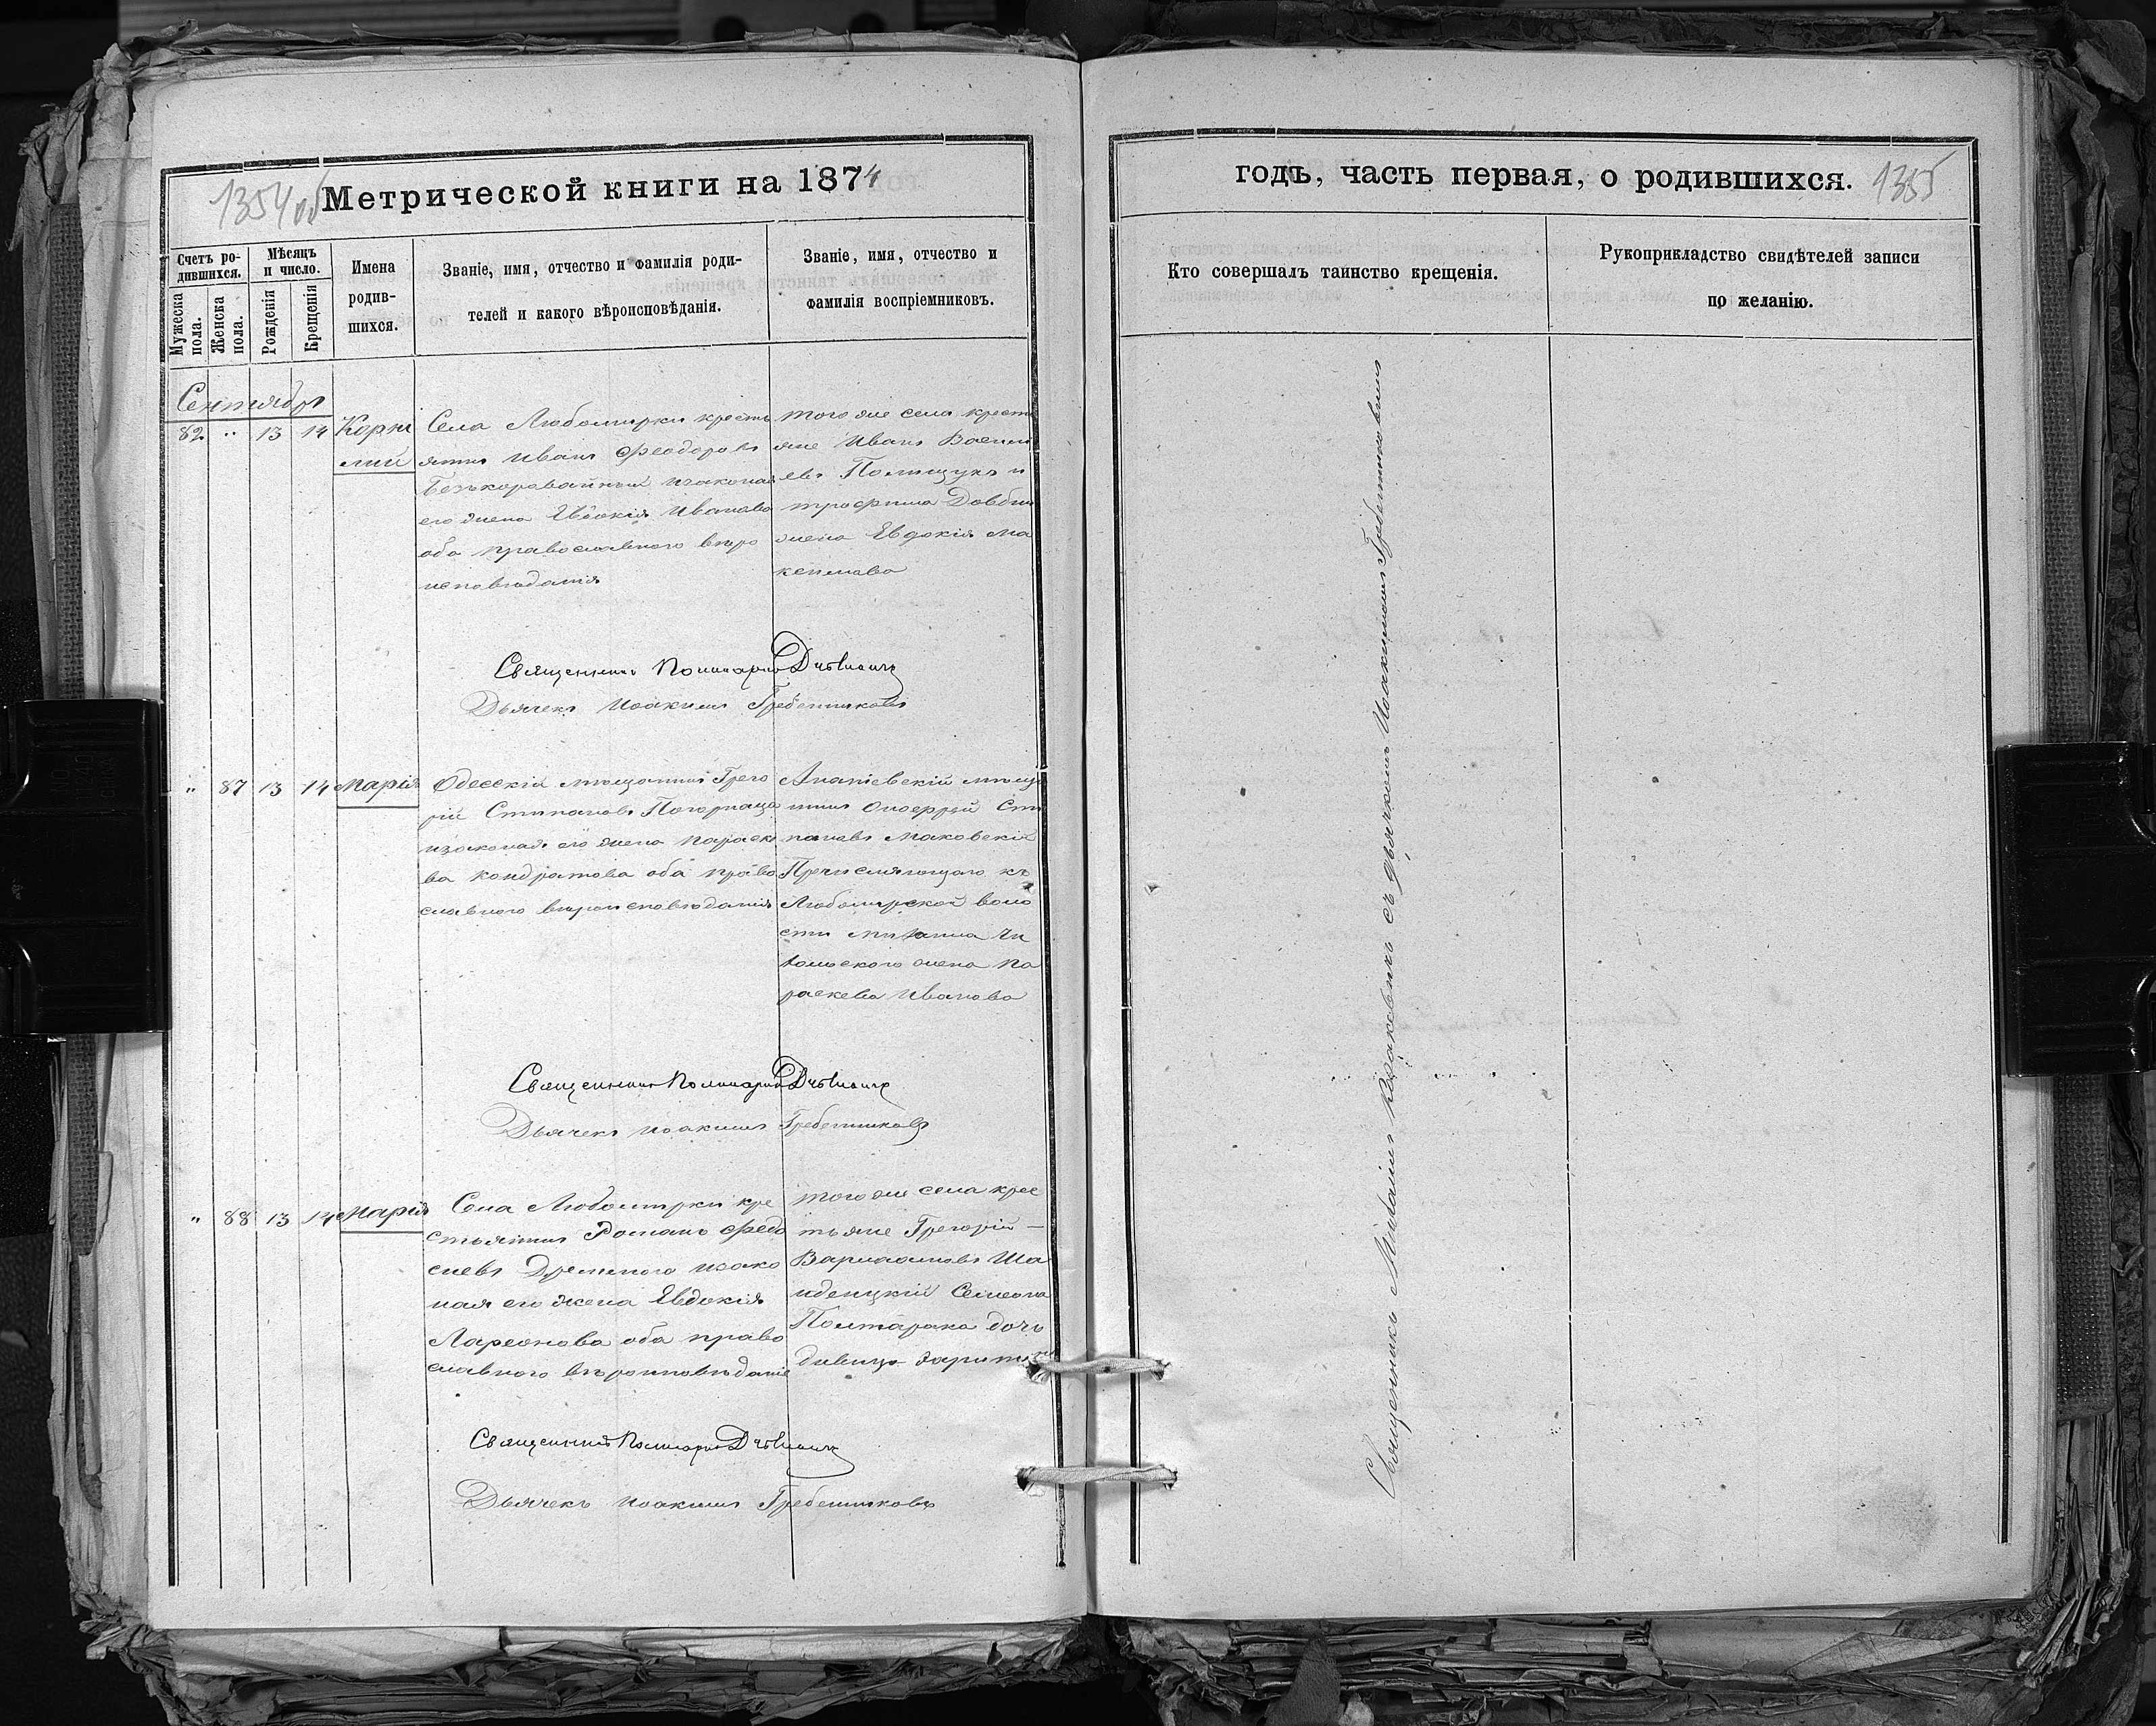 1354об
Метрической книги на 1874
Счетъ ро-
дившихся.
Мѣсяцъ
и число.
Мужеска
пола.
Женска
пола.
Рожденія
Крещенія
Имена
родив-
шихся.
Званіе, имя, отчество и фамилія роди-
телей и какого вѣроисповѣданія.
Званіе, имя, отчество и
фамилія воспріемниковъ.
Сентябрь
82 " 13 14 Корни
лий
Села Любомирки кресть
янинъ Иванъ Феодоровъ
Безкоровайный изаконая
его жена Евдокія Иванова
оба православного вѣро
исповѣданія
того же села крестья
не Иванъ Васили
евъ Полищукъ и
трофима Довбни
жена Евдокія Ма
ксимова
Священникъ Поликарпъ
Дьячекъ Иоакимъ Гребенниковъ
" 87 13 14 Марія
Одесскій мѣщанинъ Григо
рій Стипановъ
изаконая его жена Параске
ва Кондратова оба право
славного вѣроисповѣданія
Ананіевскій мѣща
нинъ Онофрей Сти
пановъ Маковскій
Причисляющаго къ
Любомирской воло
сти Михаила
жена Па
раскева Иванова
Священникъ Поликарпъ
Дьячекъ Иоакимъ Гребенниковъ
" 88 13 14 Марія
Села Любомирки кре
стьянинъ Романъ Федо
сиевъ изако
ная его жена Евдокія
Лареонова оба право
славного вѣроисповѣданіе
того же села крес
тьяне Григорій —
Варлаамовъ Ша
Семеона
Полтарака дочь
дивица
Священникъ Поликарпъ
Дьячекъ Иоакимъ Гребенниковъ
годъ, часть первая, о родившихся.
1355
Кто совершалъ таинство крещенія.
Рукоприкладство свидѣтелей записи
по желанію.
Священникъ Михаилъ Козаковичъ съ дьячкомъ Иоакимомъ Гребенниковымъ